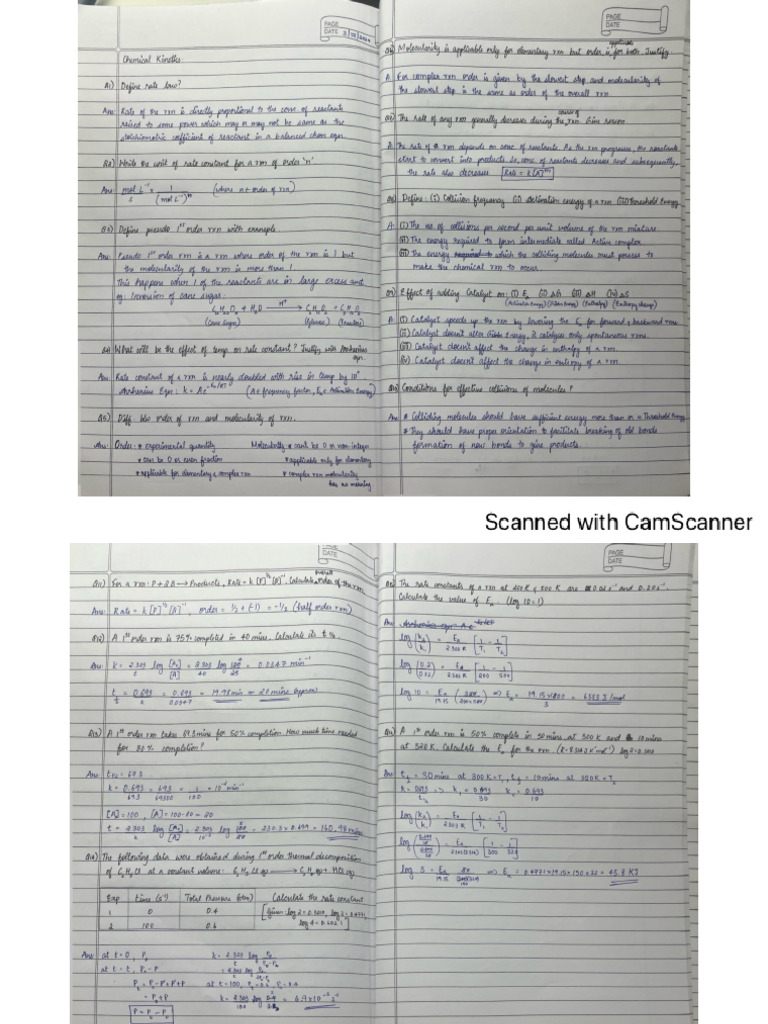 PAGE
DATE
Chemical Kinetics
Q1) Define rate law?
Ans: Rate of the rxn is directly proportional to the conc of reactants
raised to some power which may or may not be same as the
stoichiometric coefficient of reactant in a balanced chem eqn.
Q2) Write the unit of rate constant for a rxn of order 'n'.
Ans: mol L⁻¹/s × 1/(mol L⁻¹)ⁿ (where n = order of rxn)
Q3) Define pseudo 1st order rxn with example
Ans: Pseudo 1st order rxn is a rxn where order of the rxn is 1 but
the molecularity of the rxn is more than 1
This happens when 1 of the reactants are in large excess amt
eg: Inversion of cane sugar:
C₁₂H₂₂O₁₁ + H₂O —H⁺→ C₆H₁₂O₆ + C₆H₁₂O₆
(Cane sugar) (Glucose) (Fructose)
Q4) What will be the effect of temp on rate constant? Justify with Arrhenius
eqn.
Ans: Rate constant of a rxn is nearly doubled with rise in temp by 10°
Arrhenius Eqn: k = Ae^-Ea/RT (A = frequency factor, Ea = Activation Energy)
Q5) Diff. b/w order of rxn and molecularity of rxn.
Ans: Order: * experimental quantity Molecularity * cant be 0 or non integer
* can be 0 or even fraction * applicable only for elementary
* applicable for elementary & complex rxn * complex rxn molecularity
has no meaning
PAGE
DATE
Q6) Molecularity is applicable only for elementary rxn but order is applicable for both. Justify.
A. For complex rxn order is given by the slowest step and molecularity of
the slowest step is the same as order of the overall rxn.
Q7) The rate of any rxn generally decreases during the course of rxn. Give reason.
A. The rate of rxn depends on conc of reactants. As the rxn progresses, the reactants
start to convert into products. So, conc of reactants decreases and subsequently,
the rate also decreases Rate = k[A]ⁿ
Q8) Define: (i) Collision frequency (ii) Activation energy of a rxn (iii) Threshold Energy.
A: (i) The no. of collisions per second per unit volume of the rxn mixture.
(ii) The energy required to form intermediate called Active complex.
(iii) The energy required to which the colliding molecules must possess to
make the chemical rxn to occur.
Q9) Effect of adding Catalyst on: (i) Ea (ii) ΔG (iii) ΔH (iv) ΔS
(Activation Energy) (Gibbs Energy) (Enthalpy) (Entropy change)
A: (i) Catalyst speeds up the rxn by lowering the Ea for forward & backward rxn
(ii) Catalyst doesn't alter Gibbs Energy, it catalyses only spontaneous rxns.
(iii) Catalyst doesn't affect the change in enthalpy of a rxn.
(iv) Catalyst doesn't affect the change in entropy of a rxn.
Q10) Conditions for effective collisions of molecules?
Ans: * Colliding molecules should have sufficient energy more than or = Threshold Energy
* They should have proper orientation to facilitate breaking of old bonds
formation of new bonds to give products.
Scanned with CamScanner
PAGE
DATE
Q11) For a rxn: P + 2B → Products, Rate = k[P]^1/2 [B]⁻¹, Calculate overall order of the rxn.
Ans: Rate = k[P]^1/2 [A]⁻¹, order = 1/2 + (-1) = -1/2 (half order rxn)
Q12) A 1st order rxn is 75% completed in 40 mins. Calculate its t½.
Ans: k = 2.303/t log [A₀]/[A] = 2.303/40 log 100/25 = 0.0347 min⁻¹
t½ = 0.693/k = 0.693/0.0347 = 19.98 min = 20 mins (approx)
Q13) A 1st order rxn takes 69.3 mins for 50% completion. How much time needed
for 80% completion?
Ans: t½ = 69.3
k = 0.693/69.3 = 693/69300 = 1/100 = 10⁻² min⁻¹
[A]₀ = 100, [A] = 100-80 = 20
t = 2.303/k log [A₀]/[A] = 2.303/10⁻² log 100/20 = 230.3 × 0.699 = 160.98 mins
Q14) The following data were obtained during 1st order thermal decomposition
of C₂H₅Cl at a constant volume: C₂H₅Cl (g) → C₂H₄ (g) + HCl (g)
Exp time (s⁻¹) Total Pressure (atm) Calculate the rate constant
1 0 0.4 [Given: log 2 = 0.3010, log 3 = 0.4771,
2 100 0.6 log 4 = 0.6021]
Ans: at t=0, P₀
at t=t, P₀-P
Pt = P₀-P+P+P
= P₀+P
P = Pt - P₀
at t=100,
PAGE
DATE
Q15) The rate constants of a rxn at
Calculate the value of Ea. (log 10 = 1)
Ans
log(k₂/k₁) = Ea/2.303R [1/T₁ - 1/T₂]
Q16) A 1st order rxn is 50% complete in 30 mins at 300 K and 10 mins
at 320 K. Calculate the Ea for the rxn
Ans: t½ = 30 mins at 300 K = T₁, t½ = 10 mins at 320 K = T₂
log(k₂/k₁) = Ea/2.303R [1/T₁ - 1/T₂]
= 45.8 KJ